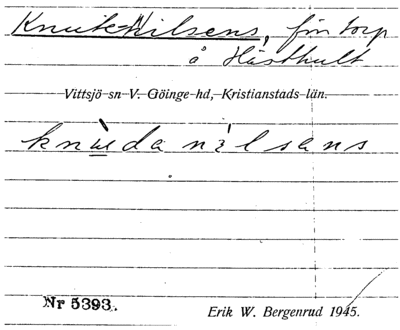 Knut-Nilsens, f.n torp
å Hästhult
Vittsjö sn V. Göinge hd, Kristianstads län.
knæ̀da nìlsans
Nr 5393.
Erik W. Bergenrud 1945.